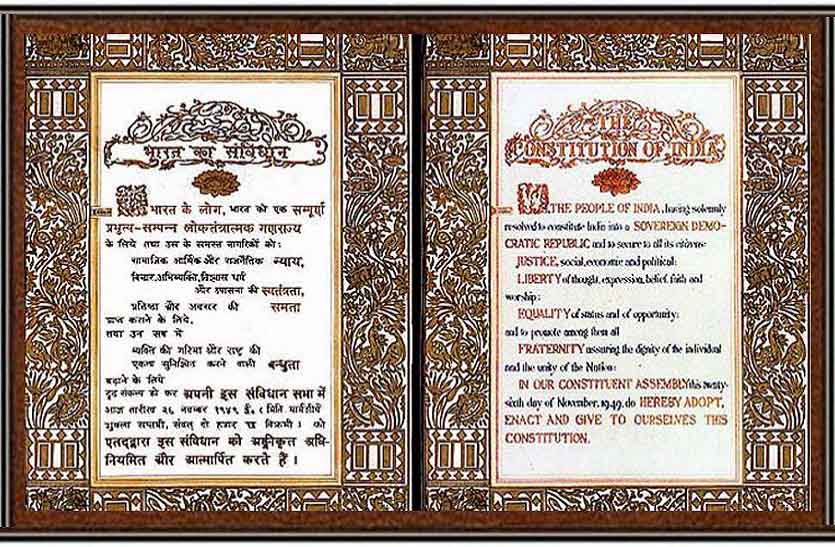 भारत का संविधान
भारत के लोग, भारत को एक सम्पूर्ण
प्रभुत्व-सम्पन्न लोकतंत्रात्मक गणराज्य
के लिये तथा उस के समस्त नागरिकों को:
सामाजिक आर्थिक और राजनैतिक न्याय,
विचार,अभिव्यक्ति,विश्वास धर्म
और उपासना की स्वतंत्रता,
प्रतिष्ठा और अवसर की समता
प्राप्त कराने के लिये,
तथा उन सब में
व्यक्ति की गरिमा और राष्ट्र की
एकता सुनिश्चित करने वाली बन्धुता
बढ़ाने के लिये
दृढ़ संकल्प हो कर अपनी इस संविधान सभा में
आज तारीख २६ नवम्बर १९४९ ई, (मिति मार्गशीर्ष
शुक्ला सप्तमी, संवत् दो हजार छ विक्रमी) को
एतद्द्वारा इस संविधान को अङ्गीकृत अधि-
नियमित और आत्मार्पित करते हैं।
THE
CONSTITUTION OF INDIA
THE PEOPLE OF INDIA, having solemnly
resolved to constitute India into a SOVEREIGN DEMO-
CRATIC REPUBLIC and to secure to all its citizens:
JUSTICE, social, economic and political;
LIBERTY of thought, expression, belief, faith and
worship;
EQUALITY of status and of opportunity;
and to promote among them all
FRATERNITY assuring the dignity of the individual
and the unity of the Nation;
IN OUR CONSTITUENT ASSEMBLY this twenty-
sixth day of November, 1949, do HEREBY ADOPT,
ENACT AND GIVE TO OURSELVES THIS
CONSTITUTION.